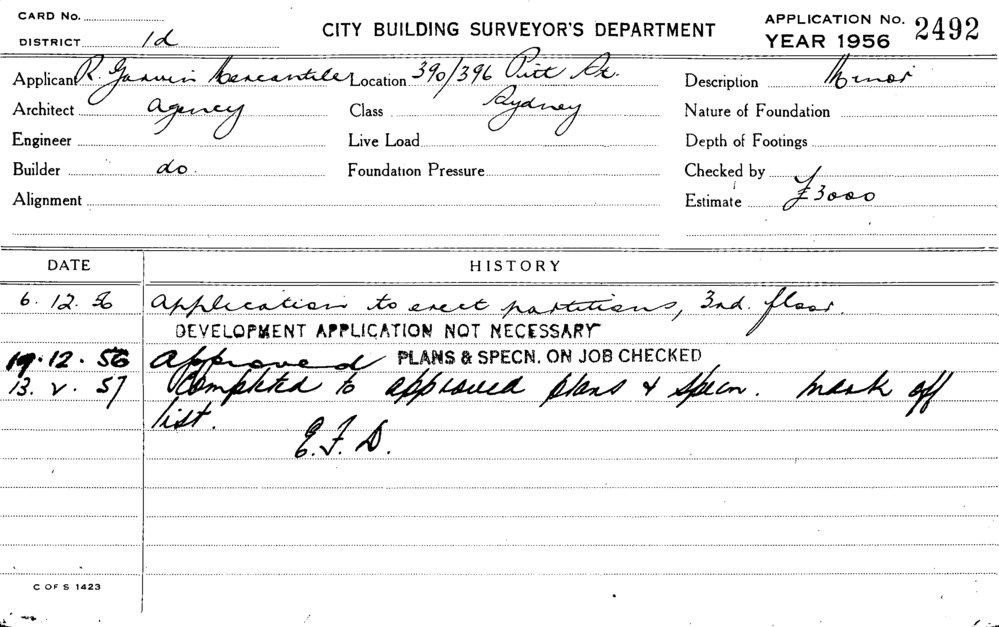 CARD No.
DISTRICT 1d
CITY BUILDING SURVEYOR'S DEPARTMENT
APPLICATION No. 2492
YEAR 1956
Applicant R. Garvin Mercantile Location 390/396 Pitt St. Description Minor
Architect agency Class Sydney Nature of Foundation
Engineer Live Load Depth of Footings
Builder do. Foundation Pressure Checked by
Alignment Estimate £3000
DATE HISTORY
6. 12. 56 Application to erect partitions, 3rd. floor.
DEVELOPMENT APPLICATION NOT NECESSARY
19. 12. 56 Approved PLANS & SPECN. ON JOB CHECKED
13. 2. 57 Completed to approved plans & specn. Mark off
list. E. F. D.
C OF S 1423